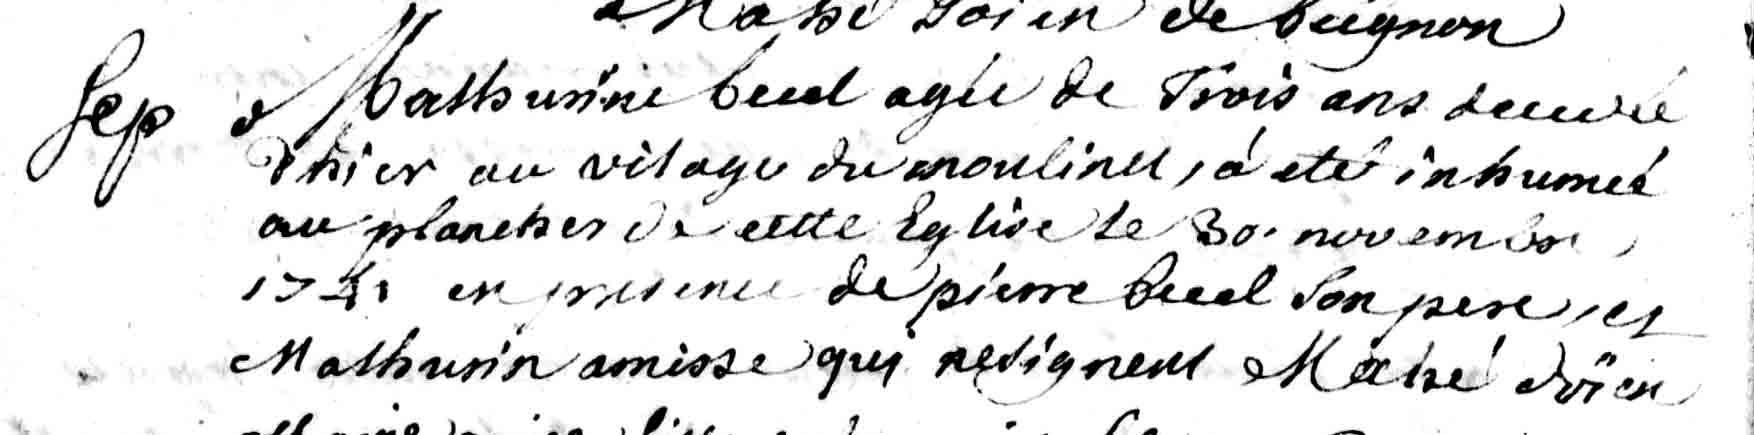 Mahé Doien de beignon
Sep Mathurine beuel agée de Trois ans decedé
D'hier au vilage du moulinet, à eté inhumeé
au plancher de cette Eglise le 30. novembre,
1741 en presence de pierre beuel son pere, et
Mathurin amisse qui ne signent Mahé doïen